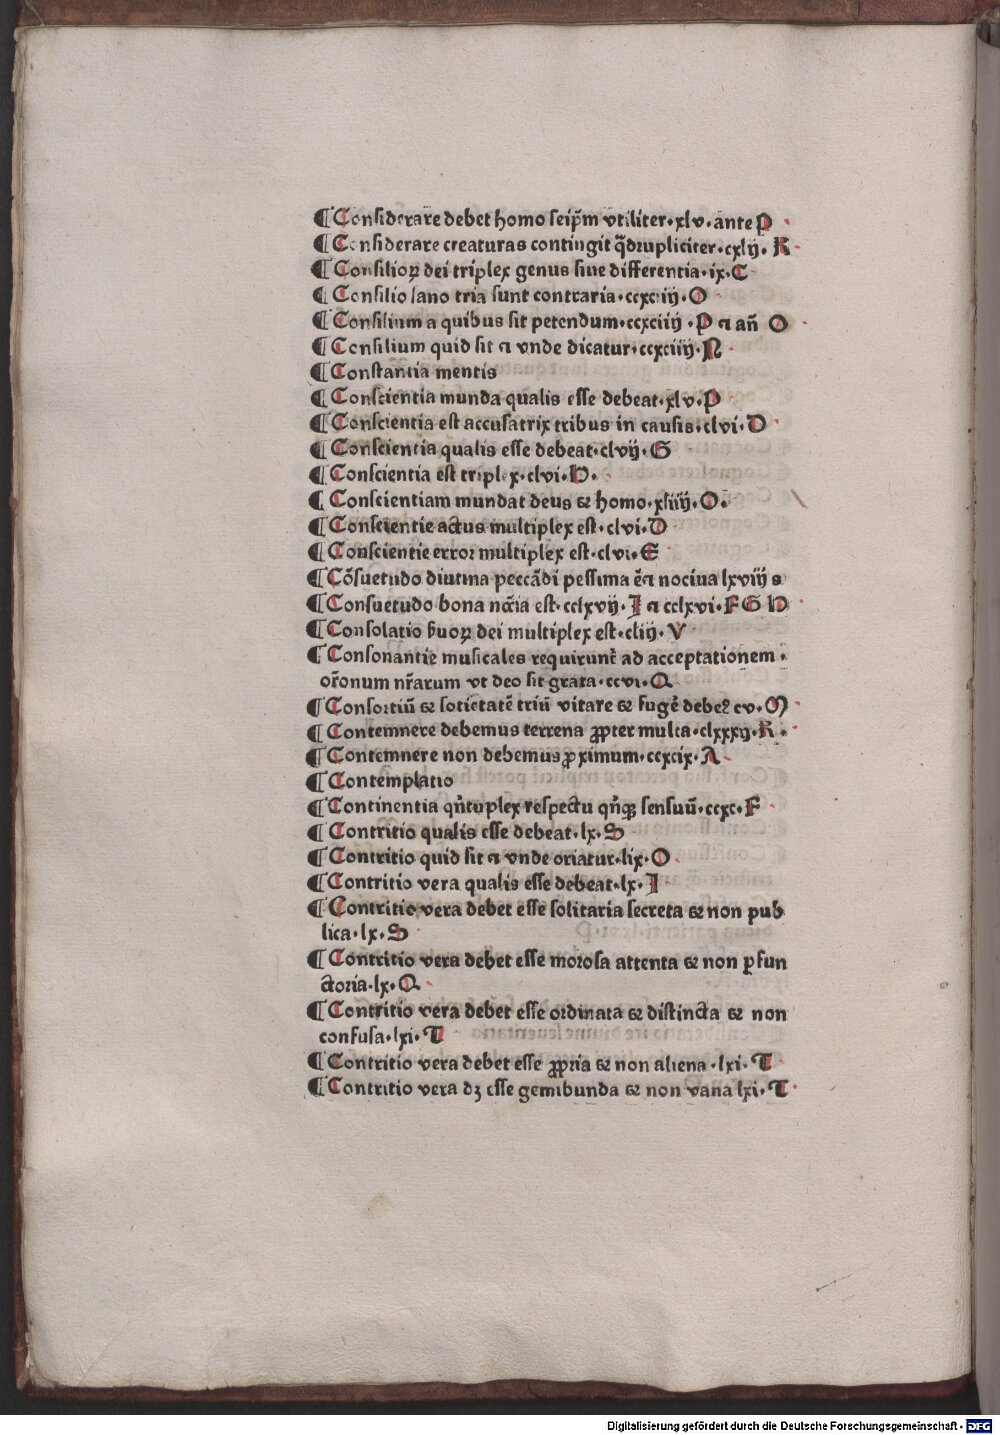 ¶Considerare debet homo seip̃m vtiliter·xlv·ante P
¶Considerare creaturas contingit q̃drupliciter·cxlij·R
¶Consilioꝝ dei triplex genus siue differentia·ix·C
¶Consilio sano tria sunt contraria·ccxciiij·O
¶Consilium a quibus sit petendum·ccxciiij·P ⁊ an̄ O
¶Consilium quid sit ⁊ vnde dicatur·ccxciiij·N
¶Constantia mentis
¶Conscientia munda qualis esse debeat·xlv·P
¶Conscientia est accusatrix tribus in causis·clvi·D
¶Conscientia qualis esse debeat·clvij·G
¶Conscientia est triplex·clvi·H·
¶Conscientiam mundat deus ⁊ homo·xliiij·O·
¶Conscientie actus multiplex est·clvi·D
¶Conscientie error multiplex est·clvi·E
¶Cōsuetudo diutina peccādi pessima ē ⁊ nociua lxviij s
¶Consuetudo bona nc̄cia est·cclxvij·I ⁊ cclxvi·F G H
¶Consolatio ẜuoꝝ dei multiplex est·cliij·V
¶Consonantie musicales requirunt̃ ad acceptationem·
or̄onum nr̄arum vt deo sit grata·ccvi·Q
¶Consortiū ⁊ sotietatē triū vitare ⁊ fugẽ debeꝫ cv·M
¶Contemnere debemus terrena ꝓpter multa·clxxxij·R·
¶Contemnere non debemus ꝓximum·ccxcix·A
¶Contemplatio
¶Continentia qn̄tuplex respectu qn̄qꝫ sensuū·ccxc·F
¶Contritio qualis esse debeat·lx·S
¶Contritio quid sit ⁊ vnde oriatur·lix·O
¶Contritio vera qualis esse debeat·lx·I
¶Contritio vera debet esse solitaria secreta ⁊ non pub
lica·lx·S
¶Contritio vera debet esse morosa attenta ⁊ non ꝑfun
ctoria·lx·Q
¶Contritio vera debet esse ordinata ⁊ distincta ⁊ non
confusa·lxi·T
¶Contritio vera debet esse ꝓpria ⁊ non aliena·lxi·T
¶Contritio vera dꝫ esse gemibunda ⁊ non vana lxi·T
Digitalisierung gefördert durch die Deutsche Forschungsgemeinschaft - DFG